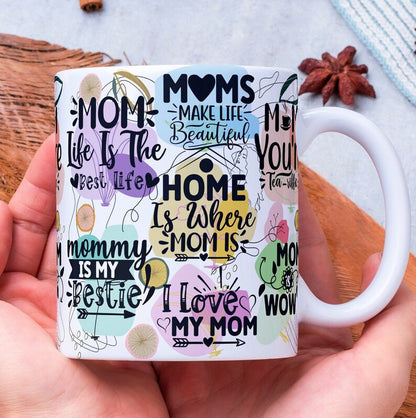 MOM
Life Is The
Best life
MOMS
MAKE LIFE
Beautiful
HOME
Is Where
MOM IS
mommy
IS MY
Bestie
I Love
MY MOM
YOU'
Tea-
MOM
WOW